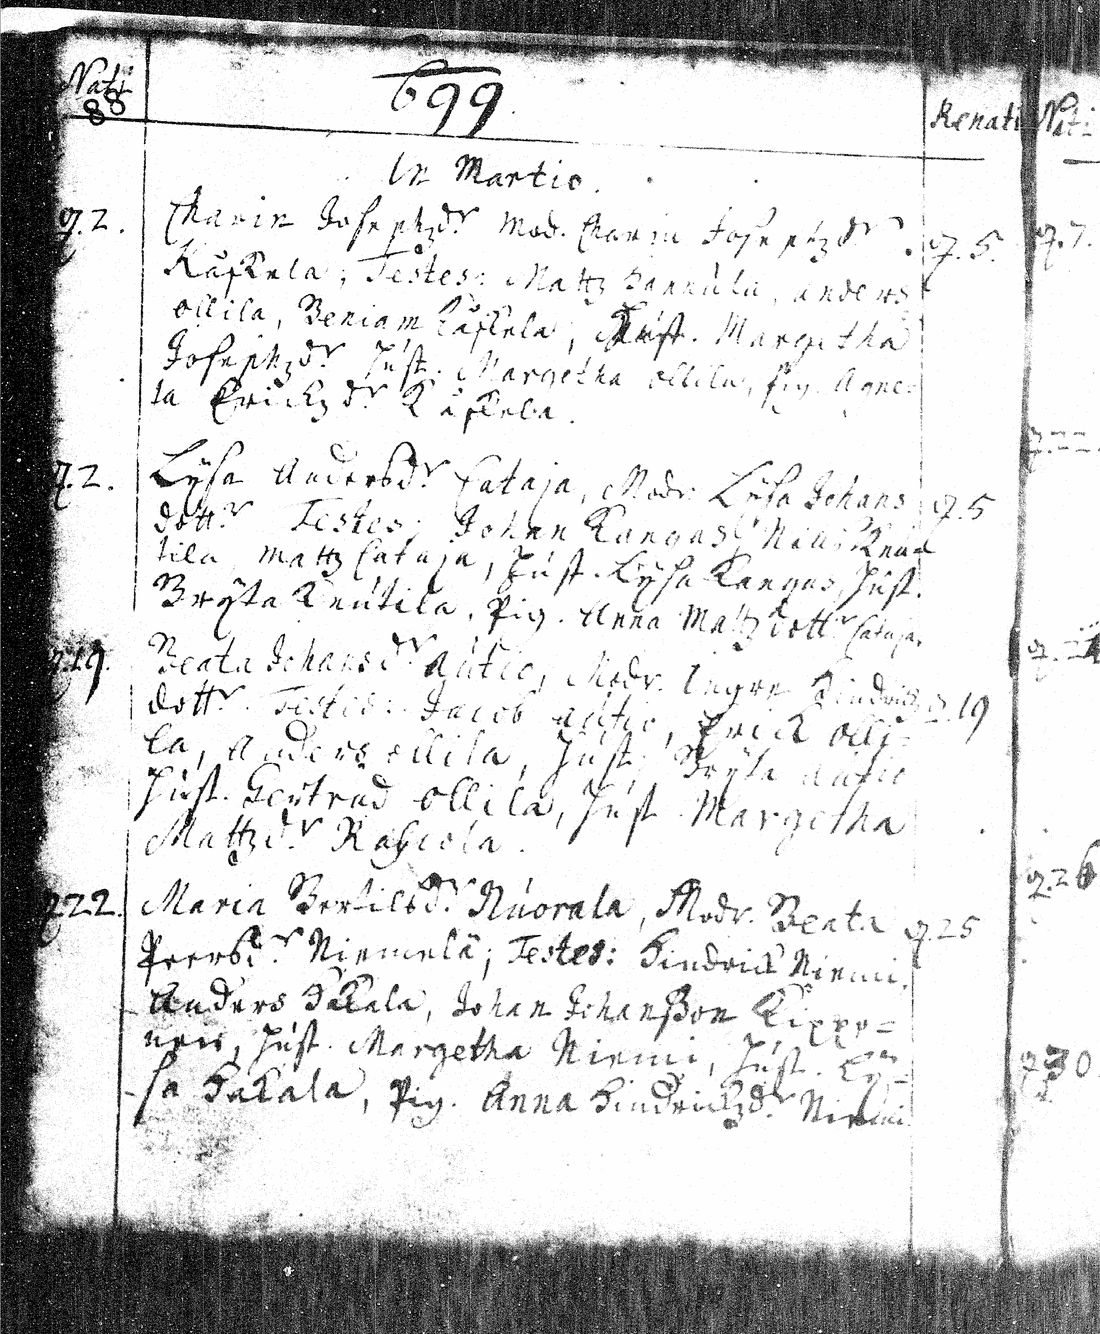 Nati 699 Renati Nati
88
In Martio.
q.2. Charin Josephzdr Mod. Charin Josephzdr. q.5. q.7.
Kåskela; Testes: Mattz Hannula, anders
ollila, Beniam Kåskela; Hust. Margetha
Josephzdr Hust. Margetha ollila, pig. Agne-
ta Erickzdr Kåskela.
q.22
q.2. Lÿsa Andersdr Cataja, Modr. Lÿsa Johans q.5
dottr. Testes: Johan Kangas, Nils Knuu
tila, Mattz Cataja, Hust. Lÿsa Kangas, Hust.
Brÿta Knutila, Pig. Anna Mattzdottr Cataja.
q.19. Beata Johansdr autio, Modr. Ingre Hindrichz q.19
dottr. Testes: Jacob autio, Erick olli-
la, Anders ollila, Hust. Brÿta autio
Hust. Gertrud ollila, Hust. Margetha
Mattzdr
q.26
q22. Maria Bertilsdr Nuorala, Modr. Beata q.25
Peersdr Niemelä; Testes: Hindrick Niemi,
Anders Hakala, Johan Johansson Kippo=
nen, Hust. Margetha Niemi, Hust. Lÿ-
sa Hakala, Pig. Anna Hindrickzdr Niemi
q30.